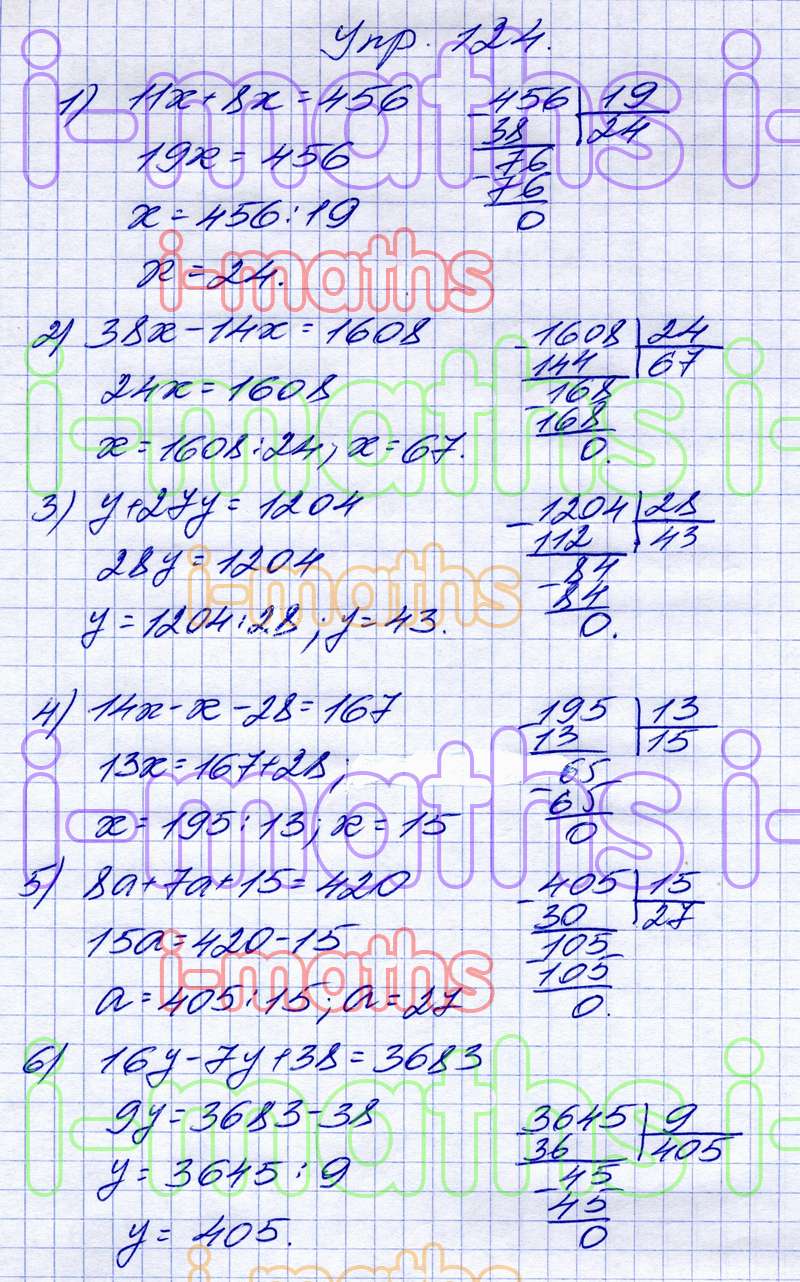 Упр. 124.
1) 11x + 8x = 456
19x = 456
x = 456 : 19
x = 24.
- 456 | 19
38 | 24
- 76
76
0
2) 38x - 14x = 1608
24x = 1608
x = 1608 : 24; x = 67.
- 1608 | 24
144 | 67
- 168
168
0.
3) y + 27y = 1204
28y = 1204
y = 1204 : 28; y = 43.
- 1204 | 28
112 | 43
- 84
84
0.
4) 14x - x - 28 = 167
13x = 167 + 28;
x = 195 : 13; x = 15
- 195 | 13
13 | 15
- 65
65
0
5) 8a + 7a + 15 = 420
15a = 420 - 15
a = 405 : 15; a = 27
- 405 | 15
30 | 27
- 105
105
0.
6) 16y - 7y + 38 = 3683
9y = 3683 - 38
y = 3645 : 9
y = 405.
3645 | 9
36 | 405
- 45
45
0
i-maths i-
i-maths
i-maths i-
i-maths
i-maths i-
i-maths
i-maths i-